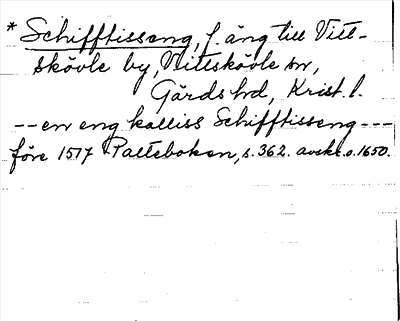 * Schifftisseng, f. äng till Vitt-
skövle by, Vittskövle sn,
Gärds hd, Krist. l.
-- en eng kalliss Schifftisseng ---
före 1517 Palteboken, s. 362. avskr. o. 1650.